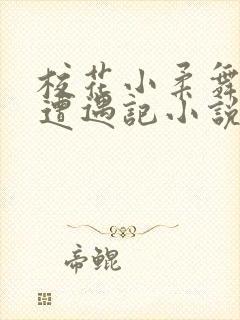 校花小柔舞
遭遇記小說
帝鯤